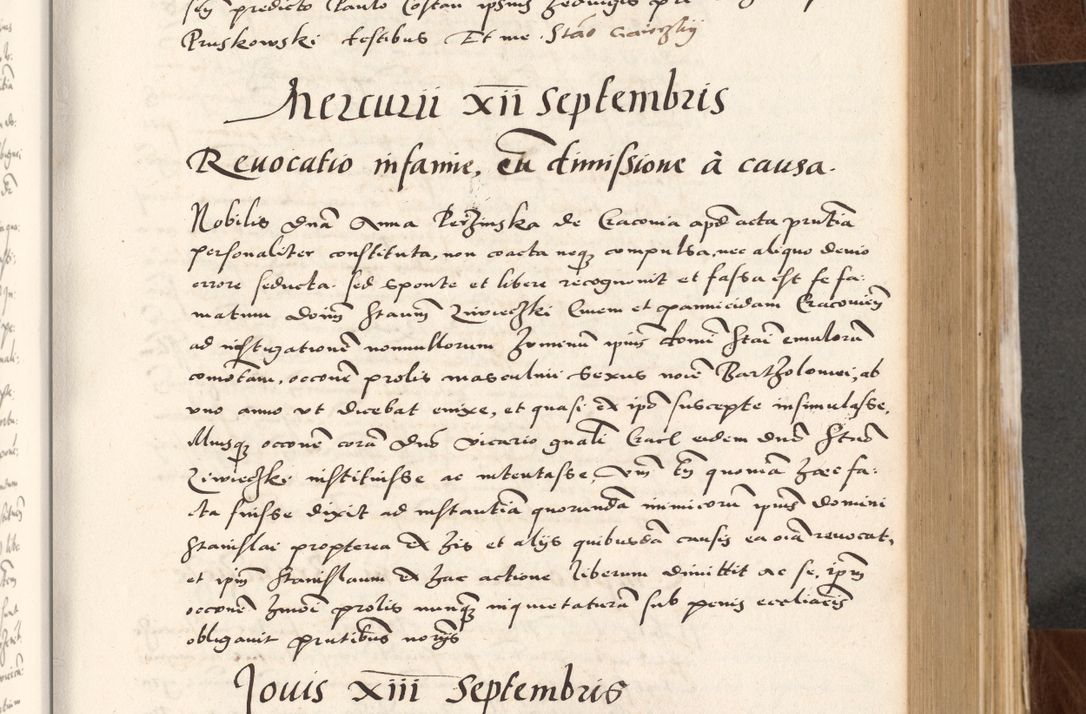 Pruskowski testibus Et me
Mercurii xii Septembris
Reuocatio infamie, cu dimissione à causa.
Nobilis dna Anna de Cracouia apd acta prntia
personaliter constituta, non coacta neqz compulsa, nec aliquo deuio
errore seducta. sed sponte et libere recognouit et fassa est se fa:
matum dnm Staum Ziwieczki Ciuem et pannicidam Cracouien
ad instigationē nonnullorum hominum ipius domi Stai emulorū
comotam, occone prolis masculini sexus noie Bartholomei, ab
vno anno vt dicebat enixe, et quasi ex ipo suscepte insimulasse,
litemqz occone corā dno vicario gnali Cracl eidem dno Stao
Ziwieczki instituisse ac intentasse, vm tn quoniā haec fa:
cta fuisse dixit ad instantiā quorundā inimicorū ipius domini
Stanislai propterea ex his et alijs quibusdā causis ea oia reuocat,
et ipm Stanislaum ex hac actione liberum dimittit ac se, ipm
occone hmoi prolis nunqz inquietaturā sub penis eccliacis
obligauit prntibus
Jouis xiii Septembris